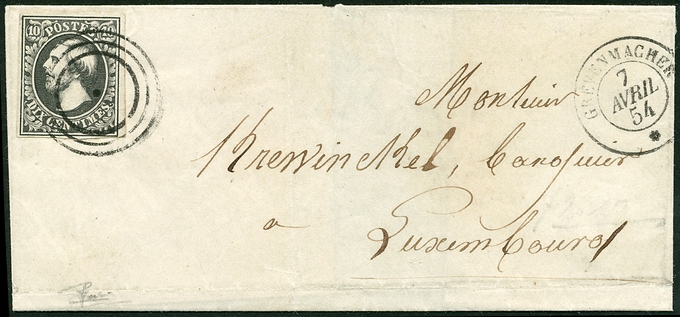 10 POSTES 10
DIX CENTIMES
GREVENMACHER
7
AVRIL
54
Monsieur
Krewinckel, banquier
a
Luxembourg